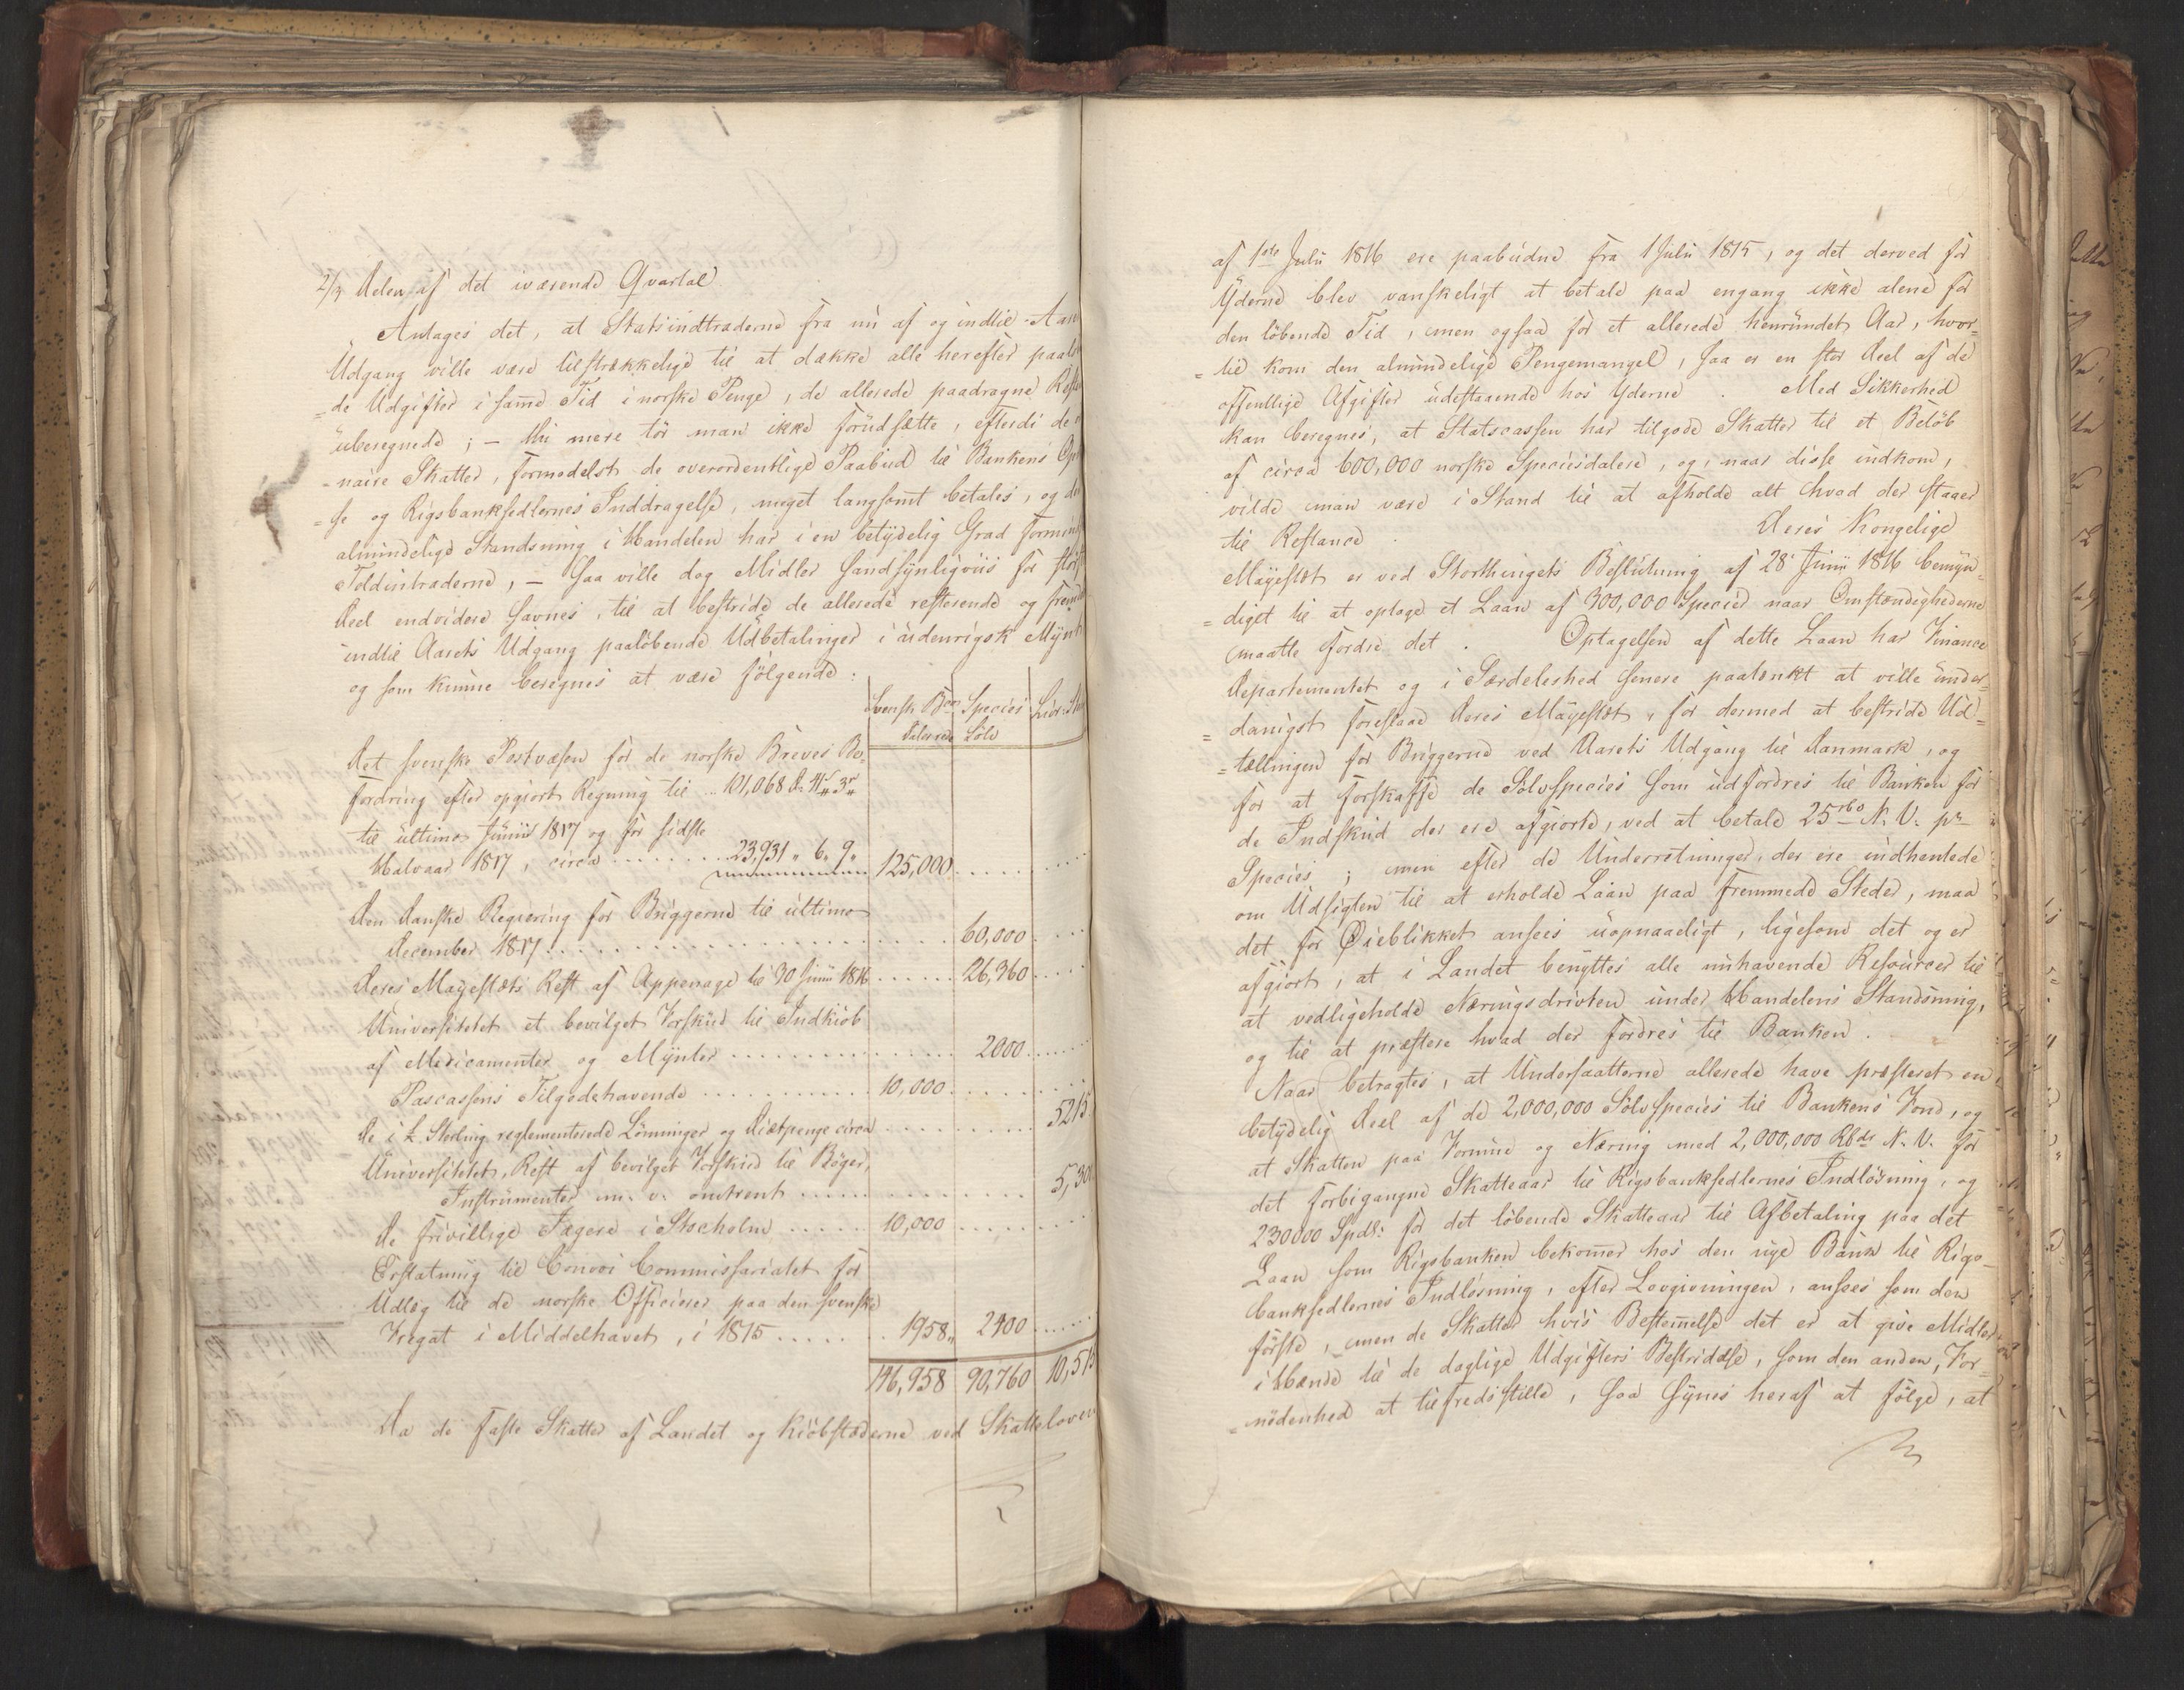 2/3 Delen af det iværende Qvartal
Antages det, at Statsindtraderne fra nu af og indtil Aar
Udgang ville være tilstrækkelige til at dække alle herefter paalø
=de Udgifter i samme Tid i norske Penge, de allerede paadragne Rest
uberegnede; – thi mere tør man ikke forudsætte, efterdi de
=naire Skatter, formedelst de overordentlige Paabud til Bankens Op
=se og Rigsbanksedlernes Inddragelse, meget langsomt betales, og de
almindelige Standsning i Handelen har i en betydelig Grad formind
Toldintraderne, – saa ville dog Midler sandsynligviis for stør
Deel endvidere savnes, til at bestride de allerede resterende og frem
indtil Aarets Udgang paaløbende Udbetalinger i udenrigsk Mynt
og som kunne beregnes at være følgende:
Svensk Bco Species
Dalere Sølv
Det svenske Postvæsen for de norske Breves Be-
fordring efter opgiort Regning til .. 101,068 d. 41 s 3 r
til ultimo Junii 1817 og for sidste
Halvaar 1817, circa ........ 23,931 " 6. 9 " 125,000 ......
Den danske Regiering for Briggerne til ultimo
December 1817 ........ 60,000 ....
Deres Majestæts Rest af Appenage til 30 Junii 1816 ...... 26,360 ....
Universitetet et bevilget Forskud til Indkiøb
af Medicamenter og Mynter ............ 2000 ......
Pascassens Tilgodehavende ............ 10,000 ......
De i £. Sterling reglementerede Lønninger og Diætpenge circa ........ 5215
Universitetet, Rest af bevilget Forskud til Bøger,
Instrumenter m. v. omtrent ........ 5,300
De frivillige Jægere i Stocholm ..... 10,000 ......
Erstatning til Convoi Commissariatet for
Udlæg til de norske Officierer paa den svenske
Fregat i Middelhavet, i 1815 ..... 1958 " 2400 ......
146,958 90,760 10,515
Da de faste Skatter af Landet og Kiøbstæderne ved Skatteloven
af 1ste Julii 1816 ere paabudne fra 1 Julii 1815, og det derved for
Yderne blev vanskeligt at betale paa engang ikke alene for
den løbende Tid, men ogsaa for et allerede henrundet Aar, hvor=
=til kom den almindelige Pengemangel, saa er en stor Deel af de
offentlige Afgifter udestaaende hos Yderne. Med Sikkerhed
kan beregnes, at Statscassen har tilgode Skatter til et Beløb
af circa 600,000 norske Speciesdalere, og, naar disse indkom,
vilde man være i Stand til at afholde alt hvad der staaer
til Restance. Deres Kongelige
Majestæt er ved Storthingets Beslutning af 28 Junii 1816 bemyn=
=diget til at optage et Laan af 300,000 Species naar Omstændighederne
maatte fordre det. Optagelsen af dette Laan har Finance
Departementet og i Særdeleshed senere paatænkt at ville under=
=danigst foreslaae Deres Majestæt, for dermed at bestride Ud=
=tællingen for Briggerne ved Aarets Udgang til Danmark, og
for at forskaffe de Sølvspecies som udfordres til Banken for
de Indskud der ere afgiorte, ved at betale 25 rbd N. V. pr
Species; men efter de Underretninger, der ere indhentede
om Udsigten til at erholde Laan paa fremmede Steder, maa
det for Øieblikket ansees uopnaaeligt, ligesom det og er
afgiort, at i Landet benyttes alle nuhavende Resourcer til
at vedligeholde Næringsdriften under Handelens Standsning,
og til at præstere hvad der fordres til Banken.
Naar betragtes, at Undersaatterne allerede have præsteret en
betydelig Deel af de 2,000,000 Sølvspecies til Bankens Fond, og
at Skatten paa Formue og Næring med 2,000,000 Rbdr N. V. for
det forbigangne Skatteaar til Rigsbanksedlernes Indløsning, og
230000 Spdlr: for det løbende Skatteaar til Afbetaling paa det
Laan som Rigsbanken bekommer hos den nye Bank til Rigs-
banksedlernes Indløsning, efter Lovgivningen, ansees som den
første, men de Skatter hvis Bestemmelse det er at give Midler
ihænde til de daglige Udgifters Bestridelse, som den anden, For=
=nødenhed at tilfredsstille, saa synes heraf at følge, at